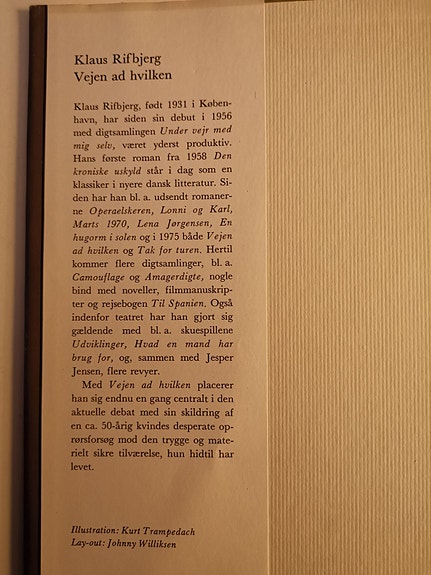 Klaus Rifbjerg
Vejen ad hvilken
Klaus Rifbjerg, født 1931 i Køben-
havn, har siden sin debut i 1956
med digtsamlingen Under vejr med
mig selv, været yderst produktiv.
Hans første roman fra 1958 Den
kroniske uskyld står i dag som en
klassiker i nyere dansk litteratur. Si-
den har han bl. a. udsendt romaner-
ne Operaelskeren, Lonni og Karl,
Marts 1970, Lena Jørgensen, En
hugorm i solen og i 1975 både Vejen
ad hvilken og Tak for turen. Hertil
kommer flere digtsamlinger, bl. a.
Camouflage og Amagerdigte, nogle
bind med noveller, filmmanuskrip-
ter og rejsebogen Til Spanien. Også
indenfor teatret har han gjort sig
gældende med bl. a. skuespillene
Udviklinger, Hvad en mand har
brug for, og, sammen med Jesper
Jensen, flere revyer.
Med Vejen ad hvilken placerer
han sig endnu en gang centralt i den
aktuelle debat med sin skildring af
en ca. 50-årig kvindes desperate op-
rørsforsøg mod den trygge og mate-
rielt sikre tilværelse, hun hidtil har
levet.
Illustration: Kurt Trampedach
Lay-out: Johnny Williksen